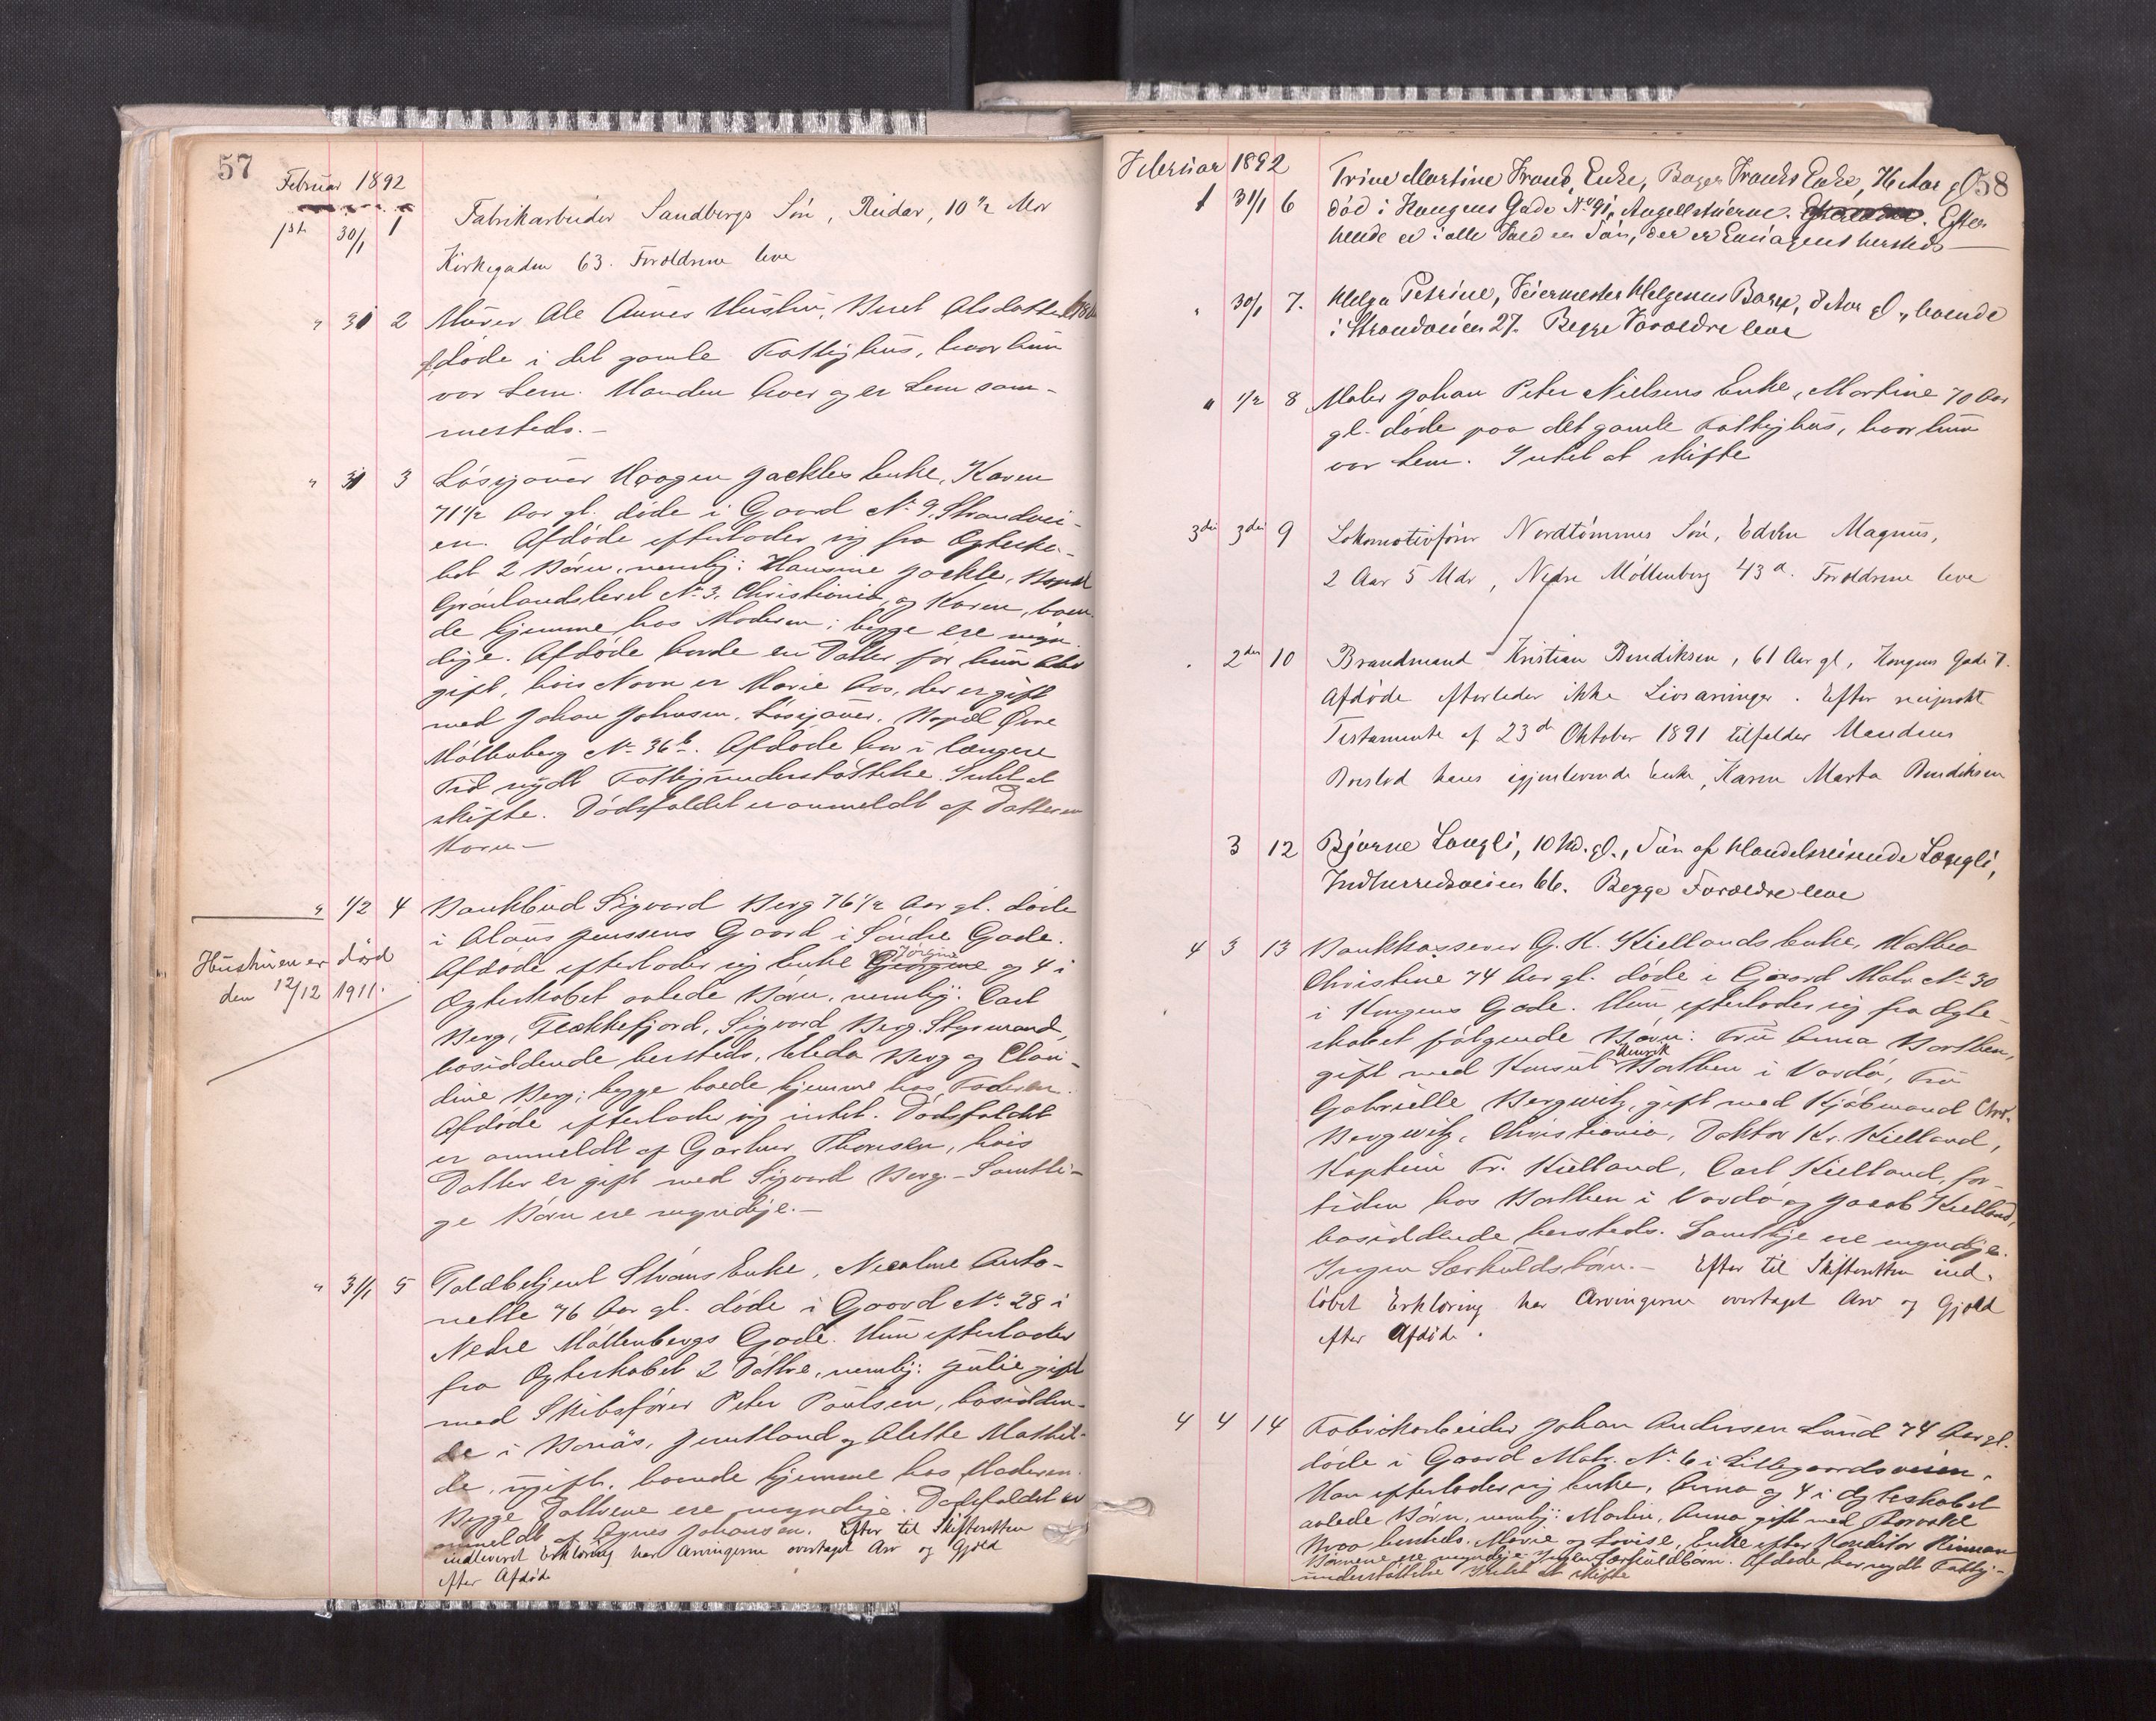 57
Februar 1892
1ste 30/1 1 Fabrikarbeider Sandbergs Søn, Reidar, 10 1/2 Mdr
Kirkegaden 63. Forældrene leve
" 31 2 Murer Ole Aunes Hustru, Beret Olsdatter
døde i det gamle Fattighus, hvor hun
var Lem. Manden lever og er Lem sam-
mesteds.-
" 31 3 Løsgjænger Haagen Jackles Enke, Karen
71 1/2 Aar gl. døde i Gaard No 9, Strandvei-
en. Afdøde efterlader sig fra Ægteska-
bet 2 Børn, nemlig: Hansine Jackle, Bopæl
Grønlandsleret No 3, Christiania, og Karen, boen-
de hjemme hos Moderen; begge ere myn-
dige. Afdøde havde en Datter før hun blev
gift, hvis Navn er Marie Aas, der er gift
med Johan Johnsen, Bopæl Øvre
Møllenberg No 36 b. Afdøde har i længere
Tid nydt Fattigunderstøttelse. Intet at
skifte. Dødsfaldet er anmeldt af Datteren
Karen-
" 1/2 4 Bankbud Sigvard Berg 76 1/2 Aar gl. døde
i Claus Jenssens Gaard i Søndre Gade.
Afdøde efterlader sig Enke Georgine Jørgine og 4 i
Ægteskabet avlede Børn, nemlig: Carl
Berg, Flekkefjord, Sigvard Berg, Styrmand,
bosiddende hersteds, Eleda Berg og Clau-
dine Berg; begge boede hjemme hos Faderen.
Afdøde efterlader sig intet. Dødsfaldet
er anmeldt af Garver Thoresen, hvis
Datter er gift med Sigvard Berg.- Samtli-
ge Børn ere myndige.-
Hustruen er død
den 12/12 1911.
" 31/1 5 Toldbetjent Strøms Enke, Nicoline Anto-
nette 76 Aar gl. døde i Gaard No 28 i
Nedre Møllenbergs Gade. Hun efterlader
fra Ægteskabet 2 Døttre, nemlig: Julie gift
med Skibsfører Peter Poulsen, bosidden-
de i Jemtland og Alette Mathil-
de, ugift, boende hjemme hos Moderen.
Begge Døttrene ere myndige. Dødsfaldet er
anmeldt af Agnes Johansen. Efter til Skifteretten
indleveret Erklæring har Arvingerne overtaget Arv og Gjæld
efter Afdøde
58
Februar 1892
1 31/1 6 Trine Martine Enke, Enke, 76 Aar gl
død i Kongens Gade No 91, Angellstuerne. Efter
hende er i alle Fald en Søn, der er hersteds
" 30/1 7. Helga Petrine, Feiermester Helgesens Barn, 8 Aar gl., boende
i Strandveien 27. Begge Forældre leve
" 1/2 8 Maler Johan Peter Nielsens Enke, Martine 70 Aar
gl. døde paa det gamle Fattighus, hvor hun
var Lem. Intet at skifte
3die 3die 9 Lokomotivfører Nordtømmes Søn, Edvin Magnus,
2 Aar 5 Mdr, Nedre Møllenberg 43 a. Forældrene leve
" 2den 10 Brandmand Kristian Bendiksen, 61 Aar gl, Kongens Gade 7.
Afdøde efterleder ikke Livsarvinger. Efter reciprokt
Testamente af 23de Oktober 1891 tilfalder Mandens
Bolod hans igjenlevende Enke, Karen Marta Bendiksen
3 12 Bjarne Langli, 10 Md. gl., Søn af Handelsreisende Langli,
Indherredsveien 66. Begge Forældre leve
4 3 13 Bankkasserer G. K. Kiellands Enke, Mathea
Christine 74 Aar gl. døde i Gaard Matr. No 30
i Kongens Gade. Hun efterlader sig fra Ægte-
skabet følgende Børn: Fru Anna Barthen,
gift med Konsul Henrik Barthen i Vardø, Fru
Gabrielle Bergwitz, gift med Kjøbmand Chr.
Bergwitz, Christiania, Doktor Kr. Kielland,
Kaptein Fr. Kielland, Carl Kielland, for-
tiden hos Barthen i Vardø og Jacob Kielland,
bosiddende hersteds. Samtlige ere myndige.
Ingen Særkuldsbørn.- Efter til Skifteretten ind-
løbet Erklæring har Arvingerne overtaget Arv og Gjæld
efter Afdøde.
4 4 14 Fabrikarbeider Johan Andersen Lund 74 Aar gl.
døde i Gaard Matr. No 6 i Lillegaardsveien.
Han efterlader sig Enke, Anna og 4 i Ægteskabet
avlede Børn, nemlig: Martin, Anna gift med
hersteds. Marie og Lovise, Enke efter Konditor
Børnene ere myndige. Ingen Særkuldbørn. Afdøde har nydt Fattig-
understøttelse Intet at skifte